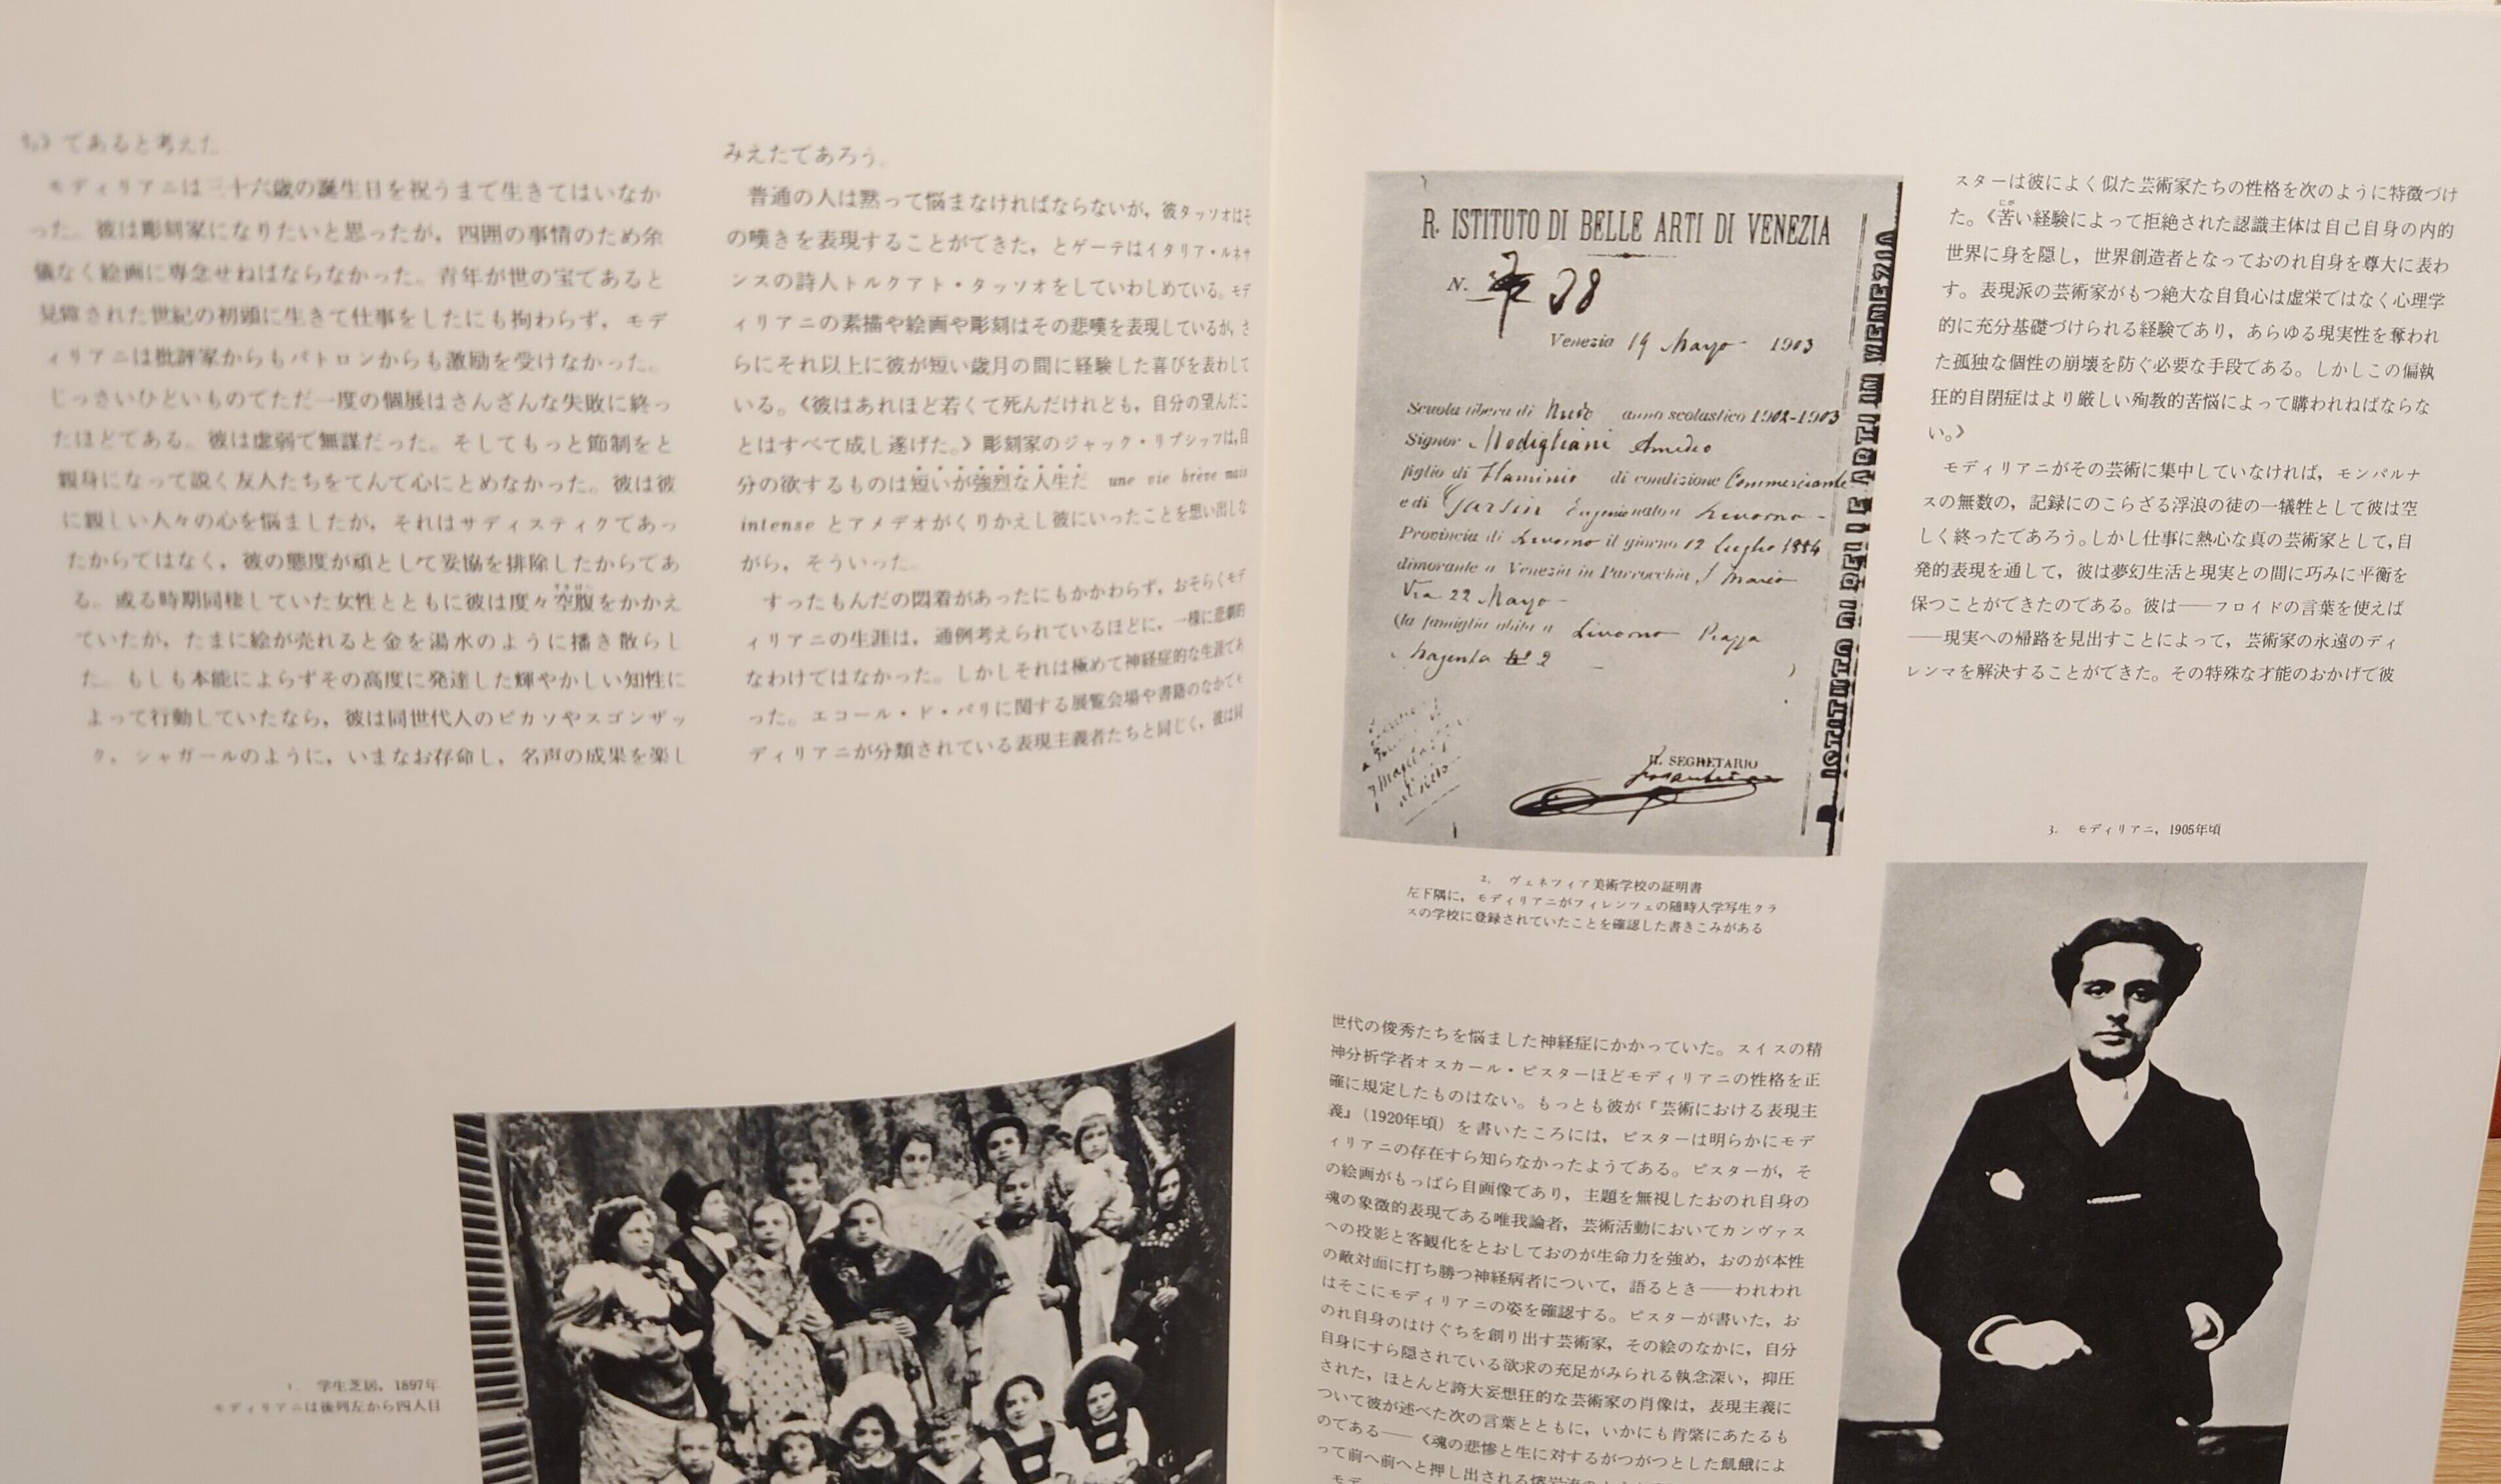 であると考えた
モディリアニは三十六歳の誕生日を祝うまで生きてはいなか
った。彼は彫刻家になりたいと思ったが，四囲の事情のため余
儀なく絵画に専念せねばならなかった。青年が世の宝であると
見做された世紀の初頭に生きて仕事をしたにも拘わらず，モデ
ィリアニは批評家からもパトロンからも激励を受けなかった。
じっさいひどいものでただ一度の個展はさんざんな失敗に終っ
たほどである。彼は虚弱で無謀だった。そしてもっと節制をと
親身になって説く友人たちをてんで心にとめなかった。彼は彼
に親しい人々の心を悩ましたが，それはサディスティクであっ
たからではなく，彼の態度が頑として妥協を排除したからであ
る。或る時期同棲していた女性とともに彼は度々空腹をかかえ
ていたが，たまに絵が売れると金を湯水のように播き散らし
た。もしも本能によらずその高度に発達した輝やかしい知性に
よって行動していたなら，彼は同世代人のピカソやスゴンザッ
ク，シャガールのように，いまなお存命し，名声の成果を楽し
みえたであろう。
普通の人は黙って悩まなければならないが，彼タッソオはそ
の嘆きを表現することができた，とゲーテはイタリア・ルネサ
ンスの詩人トルクアト・タッソオをしていわしめている。モデ
ィリアニの素描や絵画や彫刻はその悲嘆を表現しているが，さ
らにそれ以上に彼が短い歳月の間に経験した喜びを表わして
いる。《彼はあれほど若くて死んだけれども，自分の望んだこ
とはすべて成し遂げた。》彫刻家のジャック・リプシッツは，自
分の欲するものは短いが強烈な人生だ une vie brève mais
intense とアメデオがくりかえし彼にいったことを想い出しな
がら，そういった。
すったもんだの悶着があったにもかかわらず，おそらくモデ
ィリアニの生涯は，通例考えられているほどに，一様に悲劇的
なわけではなかった。しかしそれは極めて神経症的な生涯であ
った。エコール・ド・パリに関する展覧会場や書籍のなかでモ
ディリアニが分類されている表現主義者たちと同じく，彼は同
1. 学生芝居，1897年
モディリアニは後列左から四人目
R. ISTITUTO DI BELLE ARTI DI VENEZIA
N. 38
Venezia 19 Mayo 1903
Scuola libera di Nudo anno scolastico 1902-1903
Signor Modigliani Amedeo
figlio di Flaminio di condizione Commerciante
e di Garsin Eugenia nato a Livorno
Provincia di Livorno il giorno 12 luglio 1884
dimorante a Venezia in Parrocchia S. Maria
Via 22 Mayo
(la famiglia abita a Livorno Piazza
Magenta No 2 )
IL SEGRETARIO
ISTITUTO DI BELLE ARTI IN VENEZIA
2. ヴェネツィア美術学校の証明書
左下隅に，モディリアニがフィレンツェの随時入学写生クラ
スの学校に登録されていたことを確認した書きこみがある
世代の俊秀たちを悩ました神経症にかかっていた。スイスの精
神分析学者オスカール・ピスターほどモディリアニの性格を正
確に規定したものはない。もっとも彼が『芸術における表現主
義』（1920年頃）を書いたころには，ピスターは明らかにモデ
ィリアニの存在すら知らなかったようである。ピスターが，そ
の絵画がもっぱら自画像であり，主題を無視したおのれ自身の
魂の象徴的表現である唯我論者，芸術活動においてカンヴァス
への投影と客観化をとおしておのが生命力を強め，おのが本性
の敵対面に打ち勝つ神経病者について，語るとき——われわれ
はそこにモディリアニの姿を確認する。ピスターが書いた，お
のれ自身のはけぐちを創り出す芸術家，その絵のなかに，自分
自身にすら隠されている欲求の充足がみられる執念深い，抑圧
された，ほとんど誇大妄想狂的な芸術家の肖像は，表現主義に
ついて彼が述べた次の言葉とともに，いかにも肯綮にあたるも
のである——《魂の悲惨と生に対するがつがつとした飢餓によ
って前へ前へと押し出される
スターは彼によく似た芸術家たちの性格を次のように特徴づけ
た。《苦い経験によって拒絶された認識主体は自己自身の内的
世界に身を隠し，世界創造者となっておのれ自身を尊大に表わ
す。表現派の芸術家がもつ絶大な自負心は虚栄ではなく心理学
的に充分基礎づけられる経験であり，あらゆる現実性を奪われ
た孤独な個性の崩壊を防ぐ必要な手段である。しかしこの偏執
狂的自閉症はより厳しい殉教的苦悩によって購われねばならな
い。》
モディリアニがその芸術に集中していなければ，モンパルナ
スの無数の，記録にのこらざる浮浪の徒の一犠牲として彼は空
しく終ったであろう。しかし仕事に熱心な真の芸術家として，自
発的表現を通して，彼は夢幻生活と現実との間に巧みに平衡を
保つことができたのである。彼は——フロイドの言葉を使えば
——現実への帰路を見出すことによって，芸術家の永遠のディ
レンマを解決することができた。その特殊な才能のおかげで彼
3. モディリアニ，1905年頃